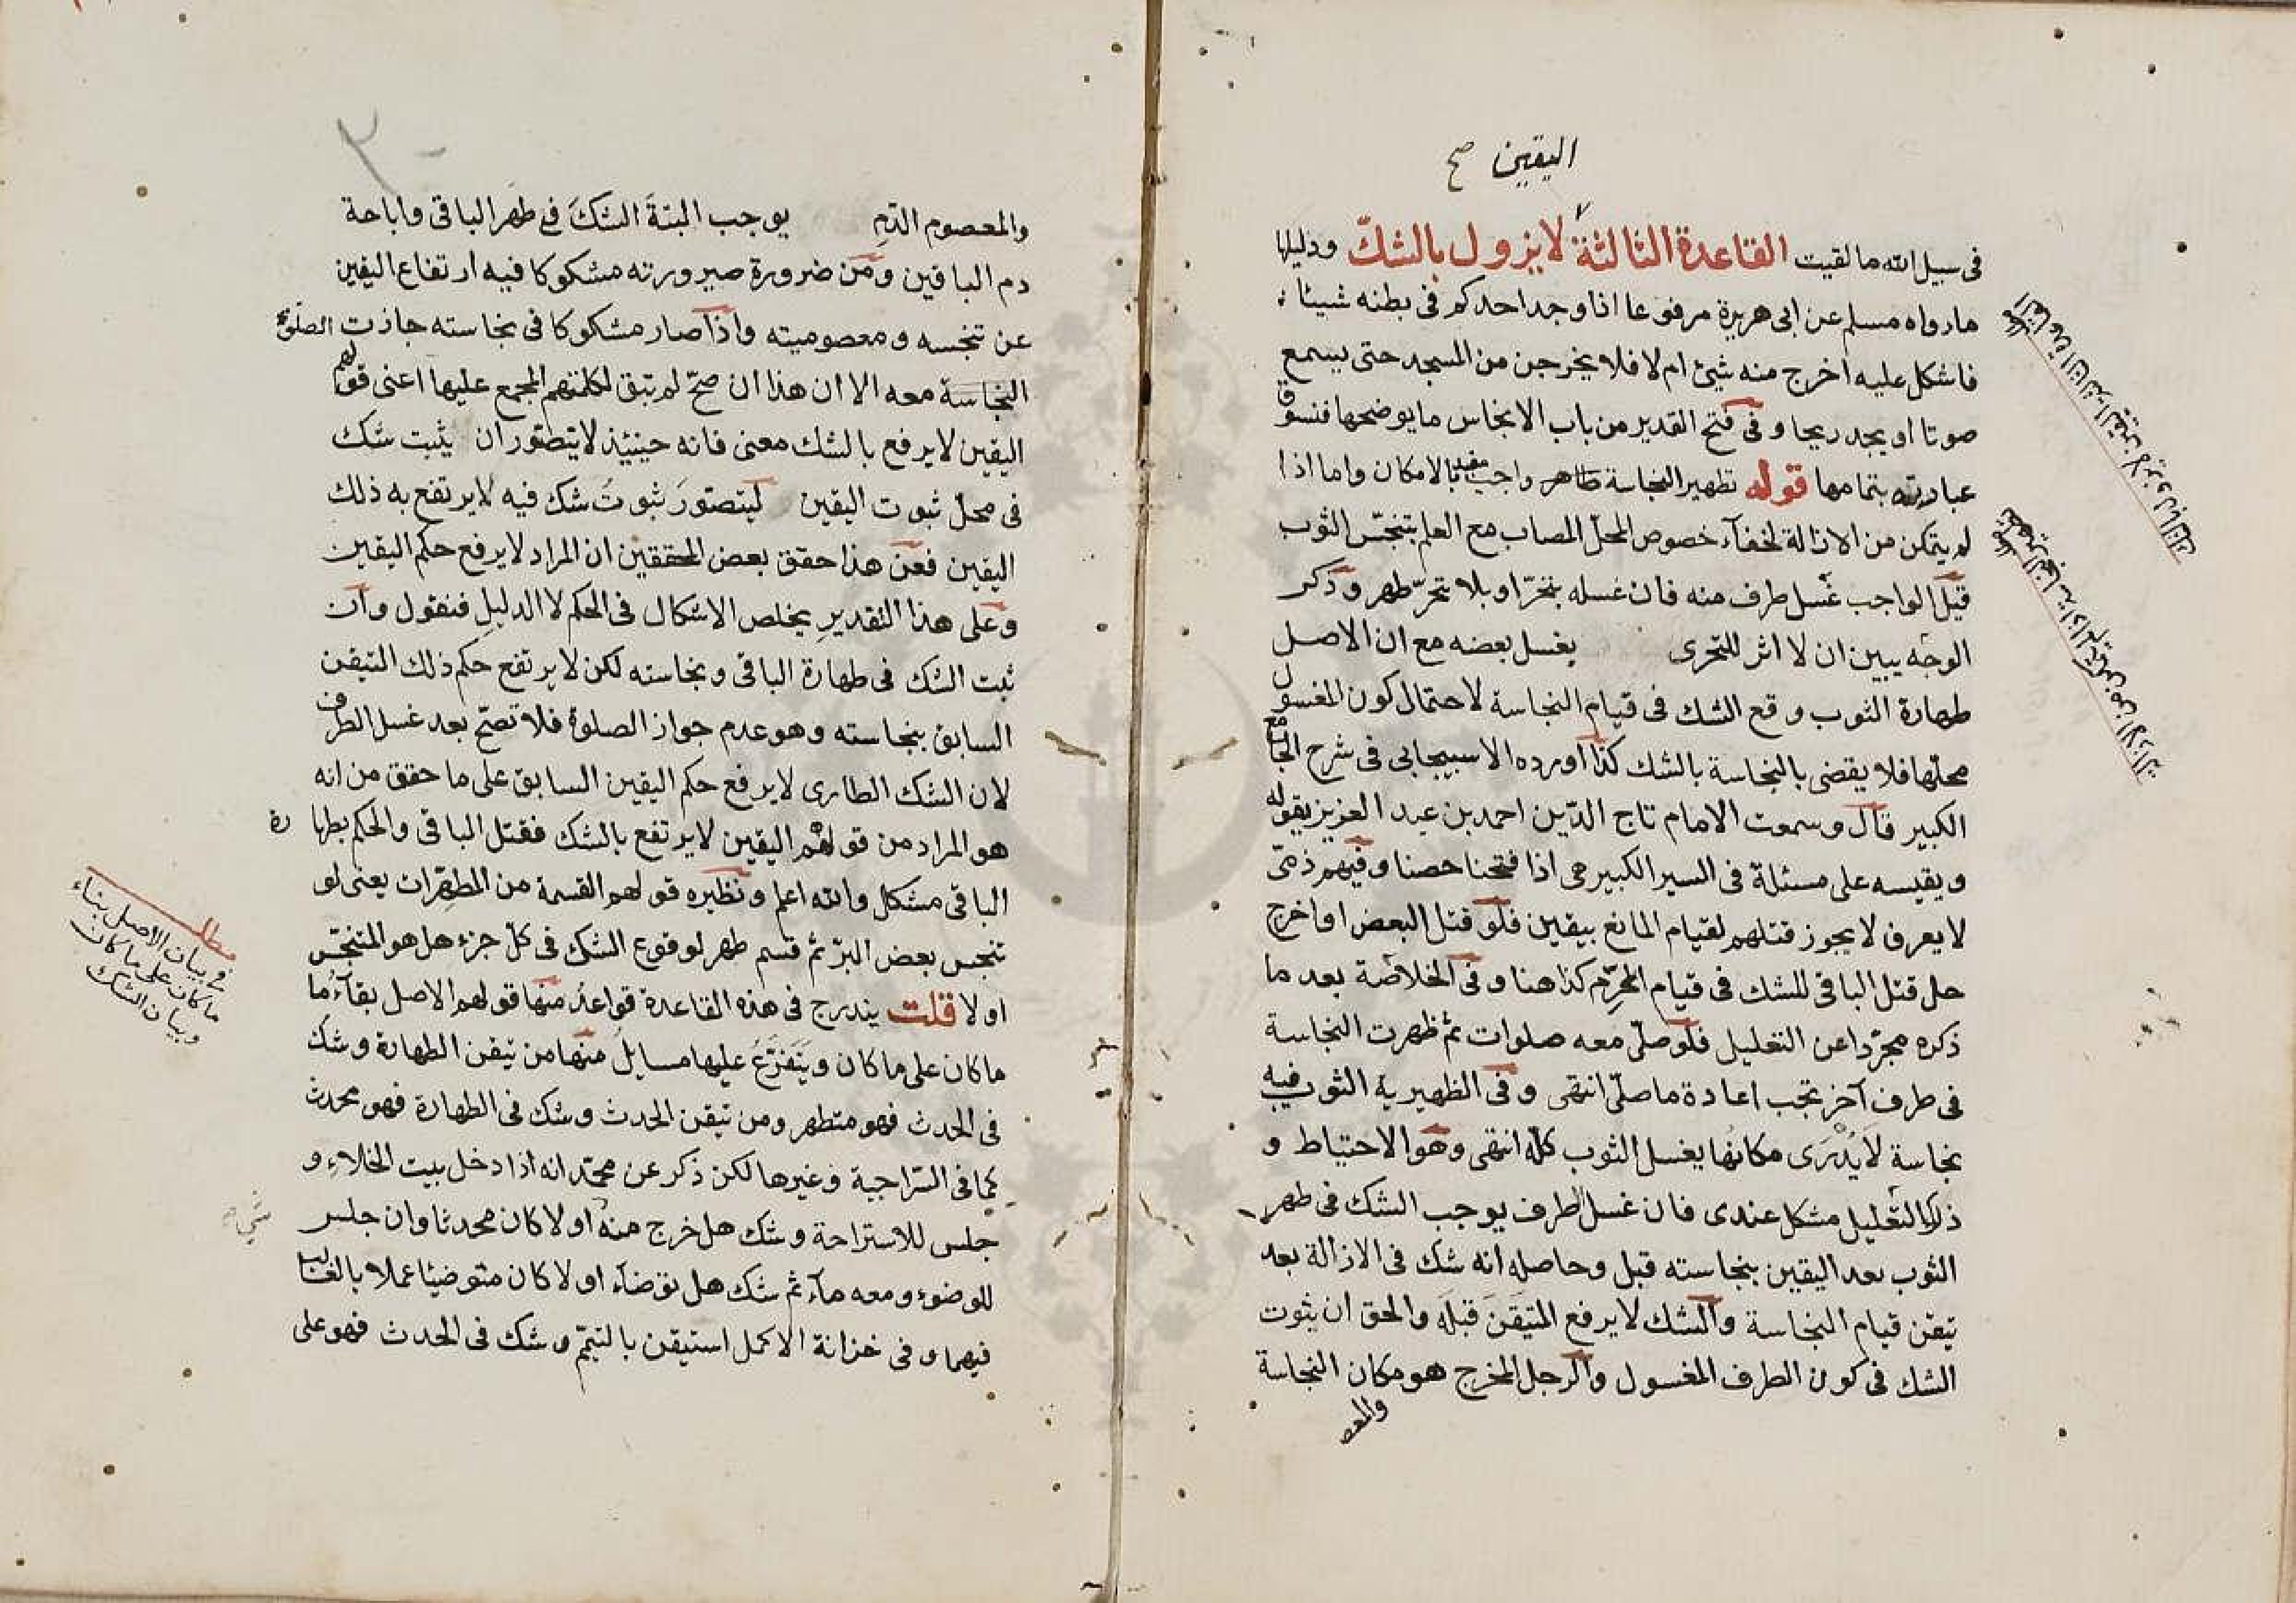 اليقين صح
فى سبيل الله ما لقيت القاعدة الثالثة لا يزول بالشكّ ودليلها
ما رواه مسلم عن ابى هريرة مرفوعا اذا وجد احدكم فى بطنه شيئا
فاشكل عليه اخرج منه شئ ام لا فلا يخرجن من المسجد حتى يسمع
صوتا او يجد ريحا وفى فتح القدير من باب الانجاس ما يوضحها فنسوق
عبارته بتمامها قوله تطهير النجاسة طاهر واجب مقيد بالامكان واما اذا
لم يتمكن من الازالة لخفآء خصوص المحلّ المصاب مع العلم بتنجّس الثوب
قيل الواجب غَسل طرف منه فان غسله بتحرّ او بلا تحرّ طهر وذكر
الوجه يبين ان لا اثر للتحرى يغسل بعضه مع ان الاصل
طهارة الثوب وقع الشك فى قيام النجاسة لاحتمال كون المغسول
محلّها فلا يقضى بالنجاسة بالشك كذا اورده الاسبيجابى فى شرح الجامع
الكبير قال وسمعت الامام تاج الدّين احمد بن عبد العزيز يقوله
ويقيسه على مسئلة فى السير الكبير هى اذا فتحنا حصنا وفيهم ذمّى
لا يعرف لا يجوز قتلهم لقيام المانع بيقين فلو قتل البعض او اخرج
حل قتل الباقى للشك فى قيام المحرّم كذا هنا وفى الخلاصة بعد ما
ذكره مجرّدا عن التعليل فلو صلّى معه صلوات ثم ظهرت النجاسة
فى طرف آخر تجب اعادة ما صلّى انتهى وفى الظهيرية الثوب فيه
نجاسة لا يُدْرَى مكانُها يغسل الثوب كلّه انتهى وهو الاحتياط و
ذلك التعليل مشكل عندى فان غسل طرف يوجب الشك فى طهر
الثوب بعد اليقين بنجاسته قبل وحاصله انه شك فى الازالة بعد
تيقن قيام النجاسة والشك لا يرفع المتيقن قبله والحق ان ثبوت
الشك فى كون الطرف المغسول والرجل المخرج هو مكان النجاسة
والمعصـ
القاعدة الثالثة اليقين لا يزول بالشك
والمعصوم الدّم يوجب البتةَ الشكَ فى طهَر الباقى واباحة
دم الباقين ومن ضرورة صيرورته مشكوكا فيه ارتفاع اليقين
عن تنجسه ومعصوميته واذا صار مشكوكا فى نجاسته جازت الصلوة
النجاسة معه الا ان هذا ان صحّ لم تبق لكلمتهم المجمع عليها اعنى قولهم
اليقين لا يرفع بالشك معنى فانه حينئذ لا يتصّور ان يثبت شك
فى محلّ ثبوت اليقين ليتصّورَ ثبوتَ شك فيه لا يرتفع به ذلك
اليقين فعن هذا حقق بعض المحققين ان المراد لا يرفع حكم اليقين
وعلى هذا التقديرِ يخلص الاشكال فى الحكم لا الدليلِ فنقول وان
ثبت الشك فى طهارة الباقى ونجاسته لكن لا يرتفع حكم ذلك المتيقن
السابق بنجاسته وهو عدم جواز الصلوة فلا تصّح بعد غسل الطرف
لان الشك الطارى لا يرفع حكم اليقين السابق على ما حقق من انه
هو المراد من قولهم اليقين لا يرتفع بالشك فقتل الباقى والحكم بطهارة
الباقى مشكل والله اعلم ونظيره قولهم القسمة من المطهّرات يعنى لو
تنجس بعض البرّ ثم قسم طهر لوقوع الشك فى كلّ جزء هل هو المتنجّس
او لا قلت يندرج فى هذه القاعدة قواعدُ منها قولهم الاصل بقآءُ ما
ما كان على ما كان ويَتَفرّعُ عليها مسايلُ منها من تيقن الطهارة وشك
فى الحدث فهو متطهر ومن تيقن الحدث وشك فى الطهارة فهو محدث
كما فى السّراجية وغيرها لكن ذكر عن محمّد انه اذا دخل بيت الخلاء و
جلس للاستراحة وشك هل خرج منه او لا كان محدثا وان جلس
للوضوء ومعه مآء ثم شك هل توضآء او لا كان متوضيئا عملا بالغالب
فيهما وفى خزانة الاكمل استيقن بالتيمّم وشك فى الحدث فهو على
مطلب
فى بيان الاصل بناء
ما كان على ما كان
وبيان الشك